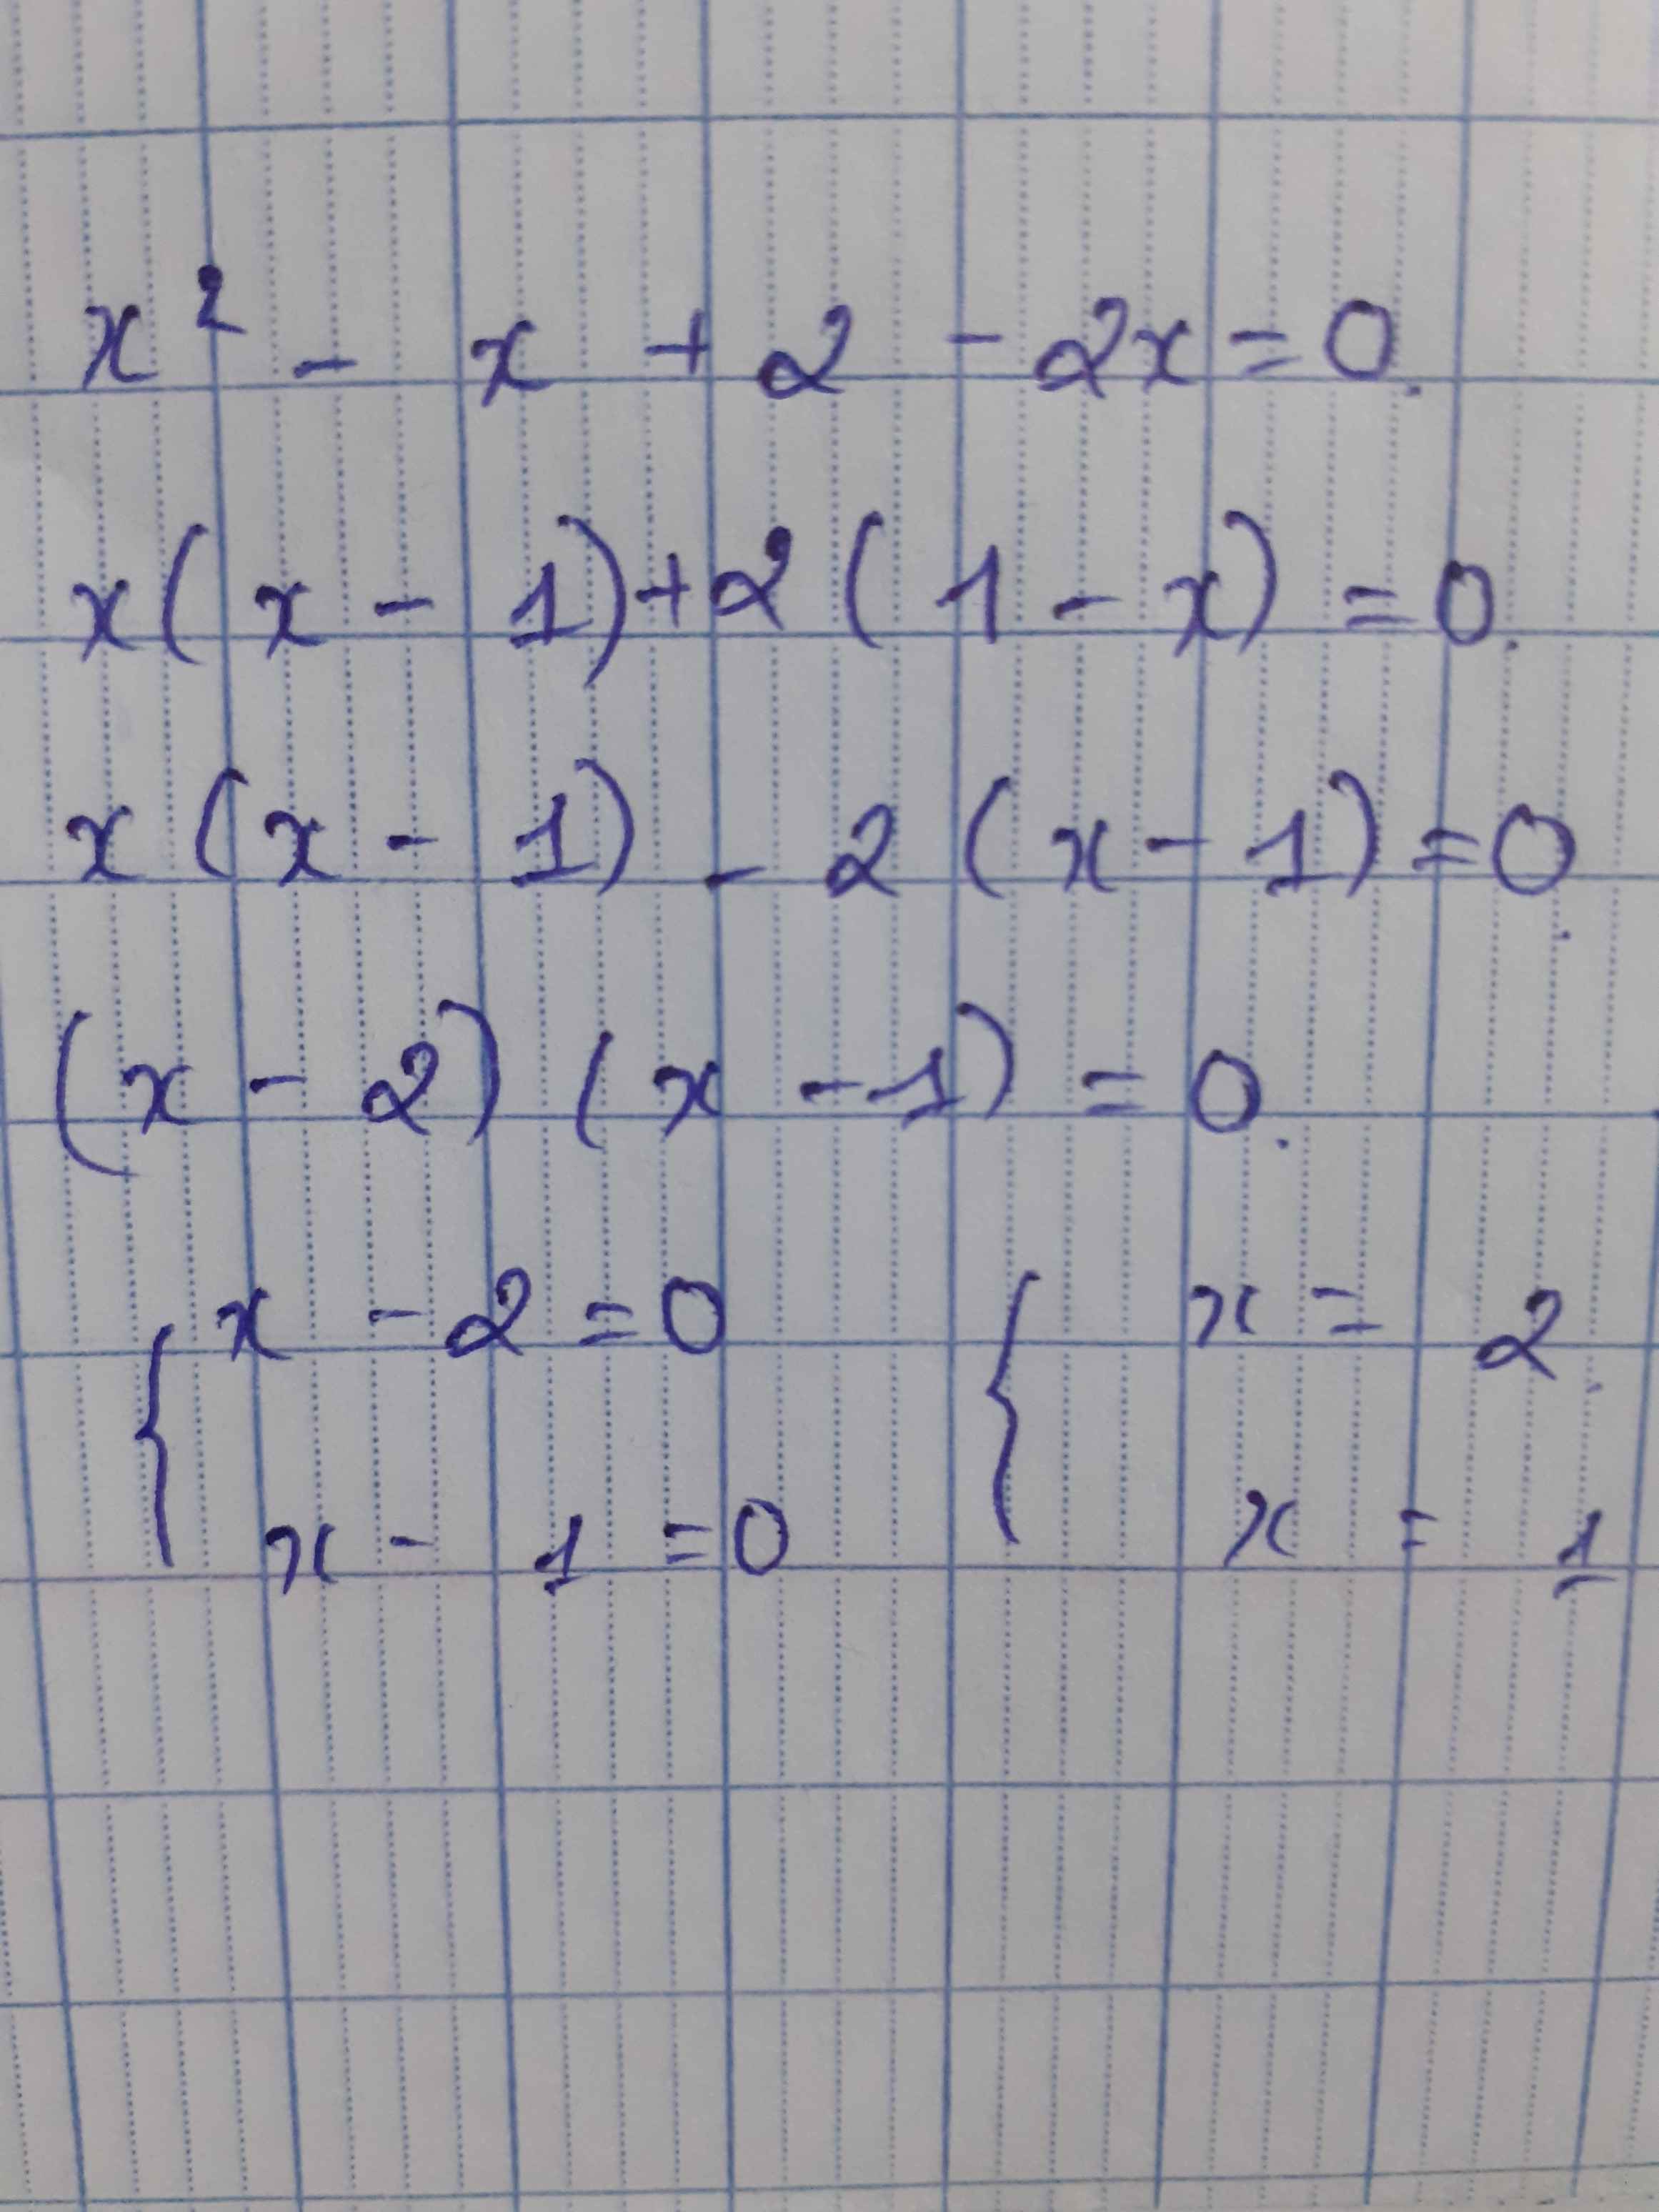 x² - x + 2 - 2x = 0.
x(x - 1) + 2(1 - x) = 0.
x(x - 1) - 2(x - 1) = 0.
(x - 2)(x - 1) = 0.
{ x - 2 = 0 { x = 2.
x - 1 = 0 x = 1